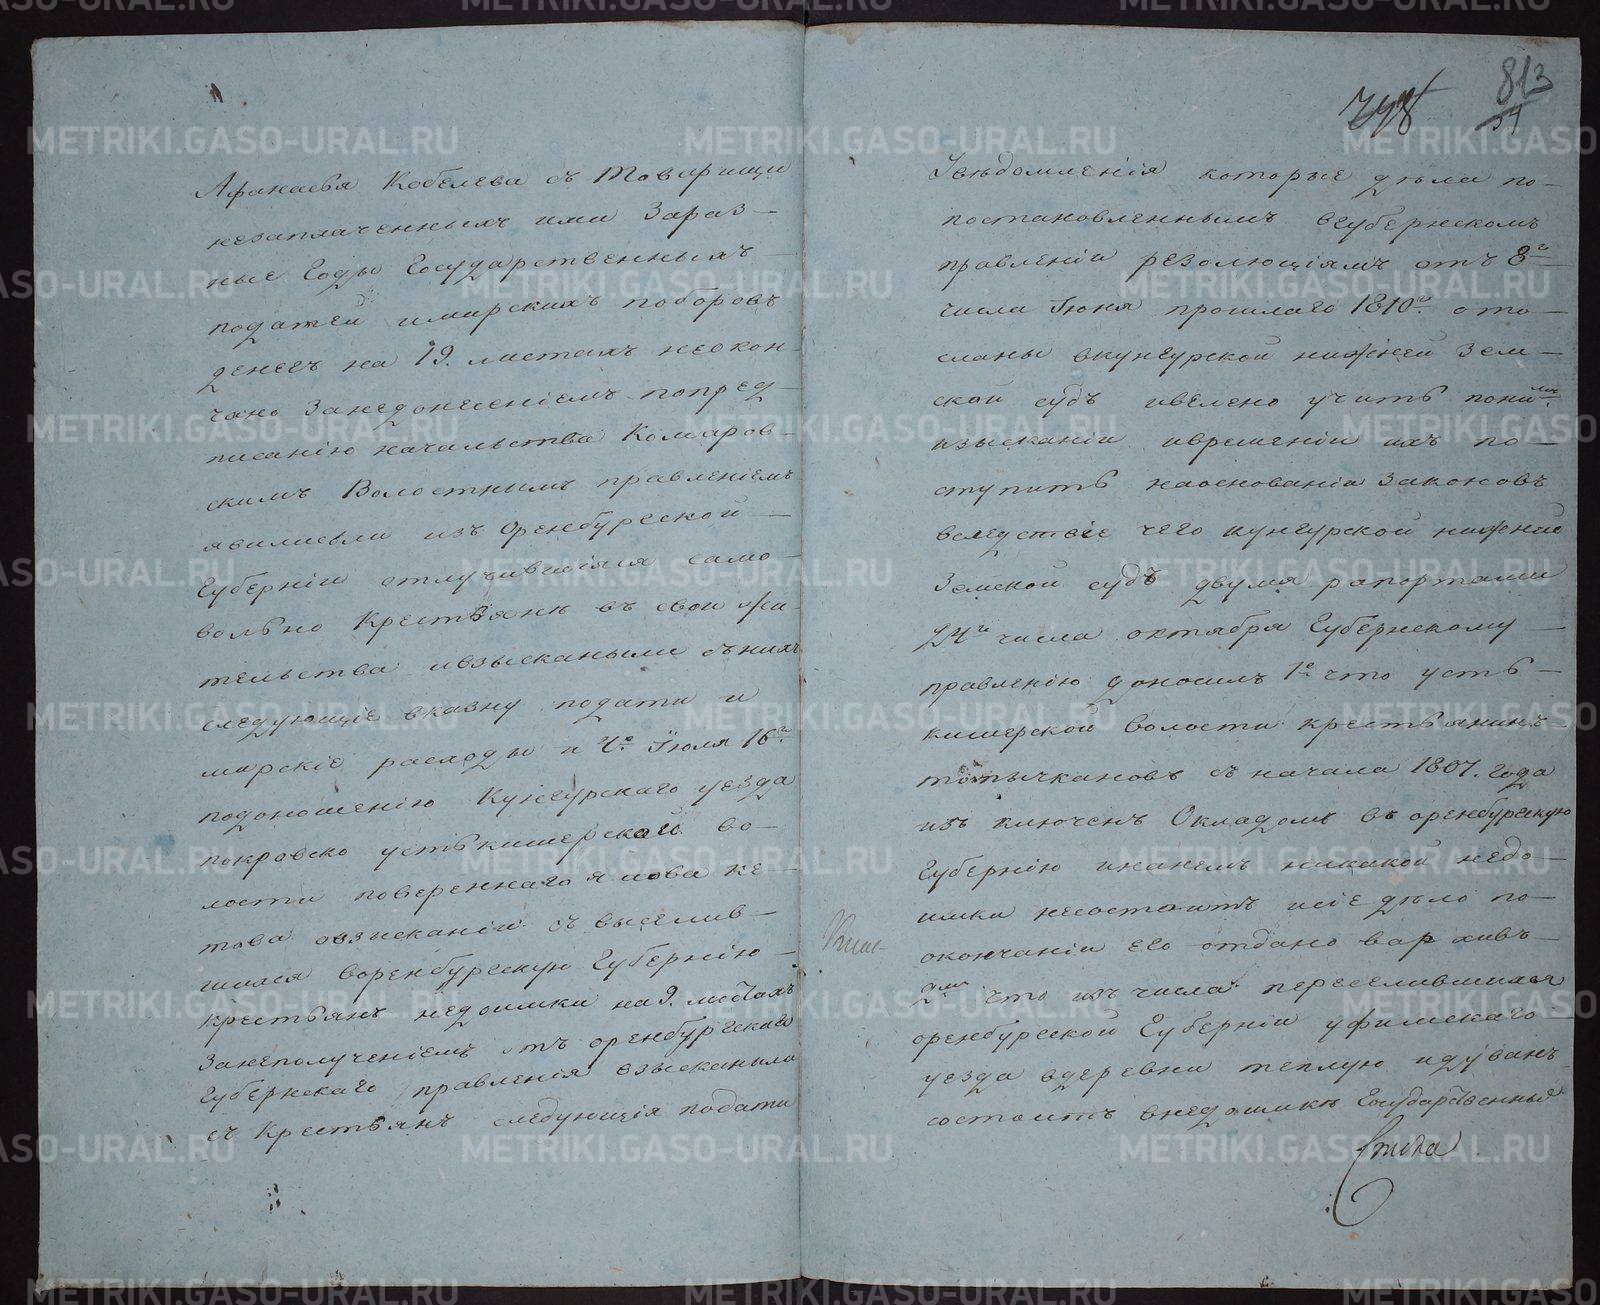 Афанасья Кобелева съ товарищи
незаплаченныхъ ими Зараз-
ные Годы Государственныхъ
податей имирскихъ поборовъ
денегъ на 19. листахъ неокон-
чано Занедонесеніемъ попред-
писанію начальства Комаров-
скимъ Волостнымъ правленіемъ
явилисьли изъ Оренбургской
Губерніи отлучившіяся само-
вольно Крестьяне въ свои жи-
тельства ивзысканыли снихъ
следующіе вказну подати и
мирскіе расходы и 4е Іюля 16го
подоношенію Кунгурскаго уезда
покровско устькишерской во-
лости повереннаго якова ке-
това овзысканіи съ выселив-
шихся воренбургскую Губернію
крестьянъ недоимки на 9. листахъ
Занеполученіемъ отъ оренбургскаго
Губернскаго правленія взысканыли
съ Крестьянъ следующія подати
798
813
54
Уведомленія которые дела по-
постановленнымъ вгубернскомъ
правленіи резолюціямъ отъ 8го
числа Іюня прошлаго 1810го ото-
сланы вкунгурской нижней Зем-
ской судъ ивелено учить
изысканіи иврешеніи ихъ по-
ступить наоснованіи Законовъ
вследствіе чего кунгурской нижней
Земской судъ двумя рапортами
24го числа октября Губернскому
правленію доносилъ 1е что усть-
кишерской волости крестьянинъ
тотычкановъ съ начала 1807. года
изъ ключенъ Окладомъ въ оренбургскую
Губернію инанемъ никакой недо-
имки несостоитъ исіе дело по-
окончаніи его отдано вархивъ
2е что изъ числа переселившихся
оренбургской Губерніи уфимскаго
уезда вдеревни теплую идуванъ
состоитъ внедоимке Государственныя